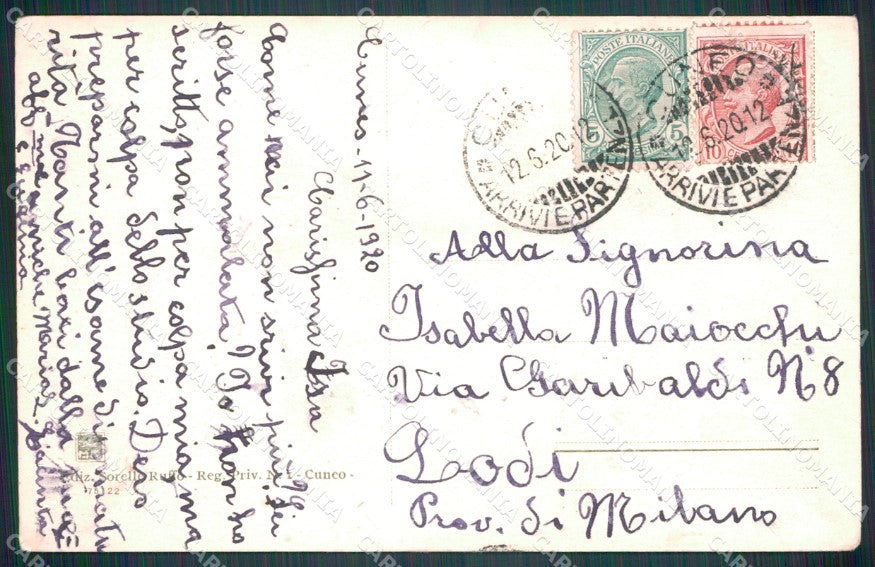 Cuneo - 11-6-1920
Carissima Isa
Come mai non scrivi più? Sei
forse ammalata? Io non ho
scritto, non per colpa mia ma
per colpa dello studio. Devo
prepararmi all'esame di matu=
rità. Tanti baci dalla tua
aff.ma amica Maria
e Luigina
Alla Signorina
Isabella Maiocchi
Via Garibaldi N. 8
Lodi
Prov. di Milano
POSTE ITALIANE
5 5
POSTE ITALIANE
10
CUNEO
12.6.20.12
ARRIVI E PARTENZE
CUNEO
12.6.20.12
ARRIVI E PARTENZE
Ediz. Sorelle Ruffo - Reg. Priv. N. 1 - Cuneo -
75122
CARTOLINOMANIA